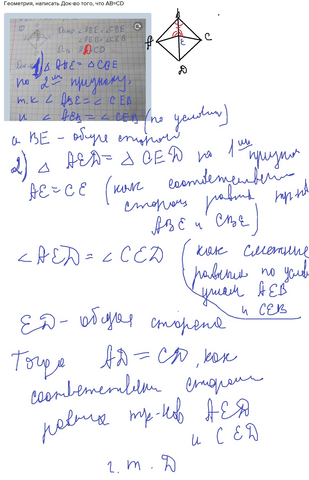 Геометрия, написать Док-во того, что AB=CD
B
A
C
E
D
∠ABE = ∠CBE
1) △ ABE = △ CBE
по 2му признаку,
т.к. ∠ ABE = ∠ CEB
и ∠ AEB = ∠ CEB (по условию)
а BE - общая сторона
2) △ AED = △ CED по 1му признаку
AE = CE (как соответственные
стороны равных тр-ков
ABE и CBE)
∠AED = ∠CED (как смежные
равным по усл
углам AEB
и CEB
ED - общая сторона
Тогда AD = CD, как
соответствен стороны
равных тр-ков AED
и CED
ч. т. Д